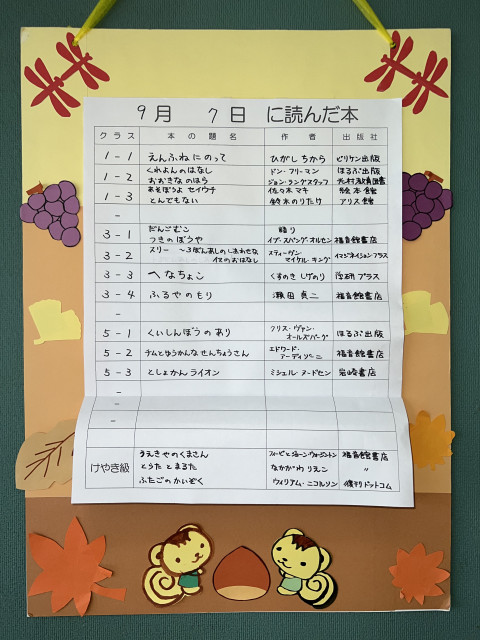 9月 7日 に読んだ本
クラス 本の題名 作者 出版社
1-1 えんふねにのって ひがしちから ビリケン出版
1-2 くれよんのはなし ドン・フリーマン ほるぷ出版
おおきなのはら ジョン・ラングスタッフ 光村教育図書
1-3 あそぼうよ セイウチ 佐々木マキ 絵本館
とんでもない 鈴木のりたけ アリス館
-
3-1 だんごむこ 語り
つきのぼうや イブ・スパング・オルセン 福音館書店
3-2 スリー ～3ぼんあしのしあわせな スティーヴン イマジネイション・プラス
イヌのおはなし マイケル・キング
3-3 へなちょこ くすのきしげのり 学研プラス
3-4 ふるやのもり 瀬田貞二 福音館書店
-
5-1 くいしんぼうのあり クリス・ヴァン・ ほるぷ出版
オールズバーグ
5-2 チムとゆうかんなせんちょうさん エドワード・ 福音館書店
アーディゾーニ
5-3 としょかんライオン ミシェル・ヌードセン 岩崎書店
-
-
-
うえきやのくまさん フィービとジョーン・ウォージントン 福音館書店
けやき級 とらたとまるた なかがわりえこ 〃
ふたごのかいぞく ウィリアム・ニコルソン 復刊ドットコム